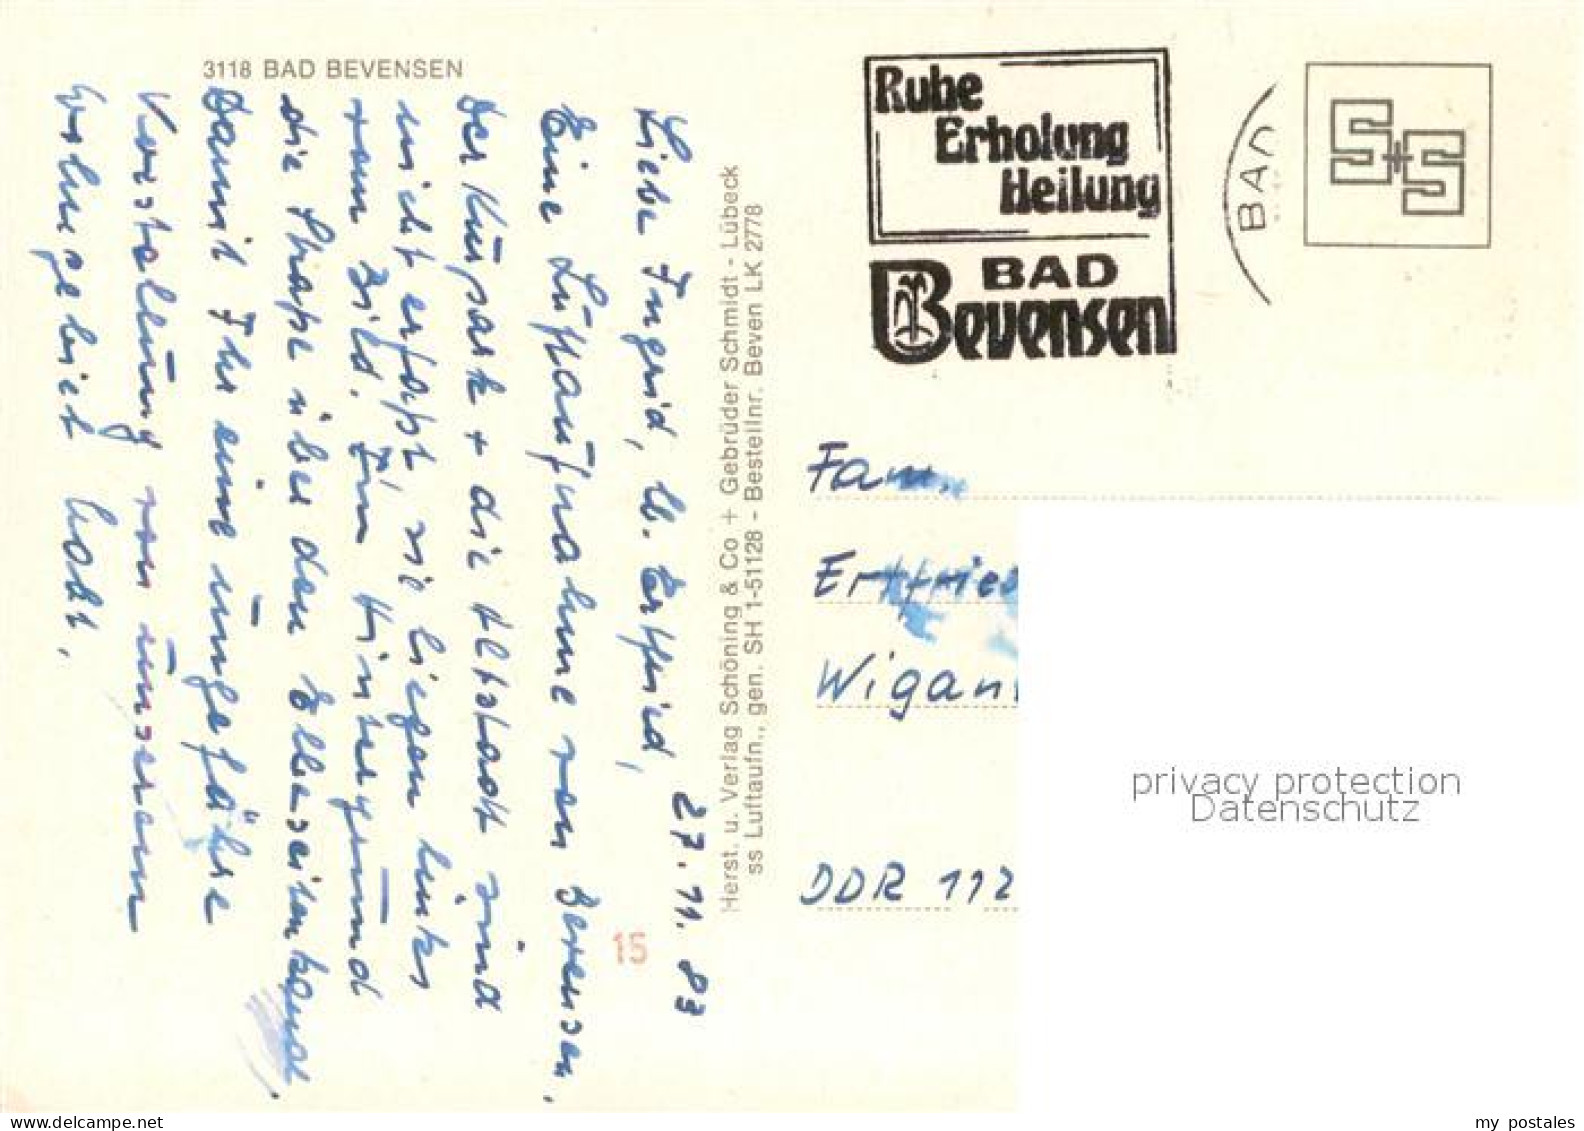 3118 BAD BEVENSEN
27.11.83
Liebe Ingrid, lb. Ertfried,
Eine Luftaufnahme von Bevensen.
Der Kurpark + die Altstadt sind
nicht erfaßt, sie liegen links
vom Bild. Im Hintergrund
die Straße über den Elbeseitenkanal.
Damit Ihr eine ungefähre
Vorstellung von unserem
gebiet habt.
15
Herst. u. Verlag Schöning & Co + Gebrüder Schmidt - Lübeck
ss Luftaufn., gen. SH 1-51128 - Bestellnr. Beven LK 2778
Ruhe
Erholung
Heilung
BAD
Bevensen
BAD
S+S
Fam.
Ertfried
Wigan
DDR 112
privacy protection
Datenschutz
my postales
www.delcampe.net